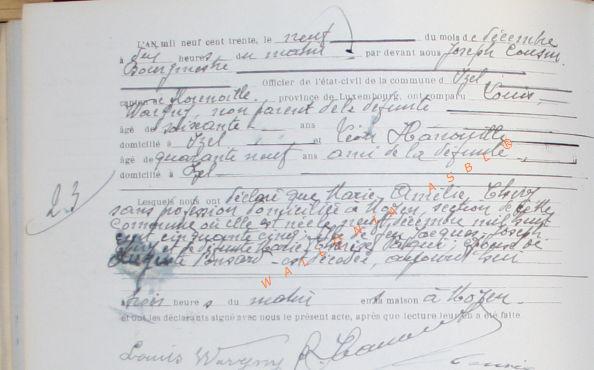 L'AN mil neuf cent trente, le neuf du mois de décembre
à dix heures du matin par devant nous Joseph Cousin
Bourgmestre
Officier de l'état-civil de la commune d' Izel
canton de Florenville, province de Luxembourg, ont comparu Louis
Wavgny, non parent de la défunte
âgé de soixante ans
domicilié à Izel et Léon Hanouille
âgé de quarante neuf ans ami de la défunte
domicilié à Izel
23
Lesquels nous ont déclaré que Marie Amélie
sans profession domiciliée à Moyen, section de cette
commune où elle est née le neuf décembre mil huit
cent cinquante cinq, fille de feu Jacques Joseph
et de feue Marie Thérèse épouse de
Auguste Ponsard est décédée, aujourd'hui
à trois heures du matin en la maison à Moyen.
et ont les déclarants signé avec nous le présent acte, après que lecture leur en a été faite
Louis Wavgny
WALLONIA ASBL ©